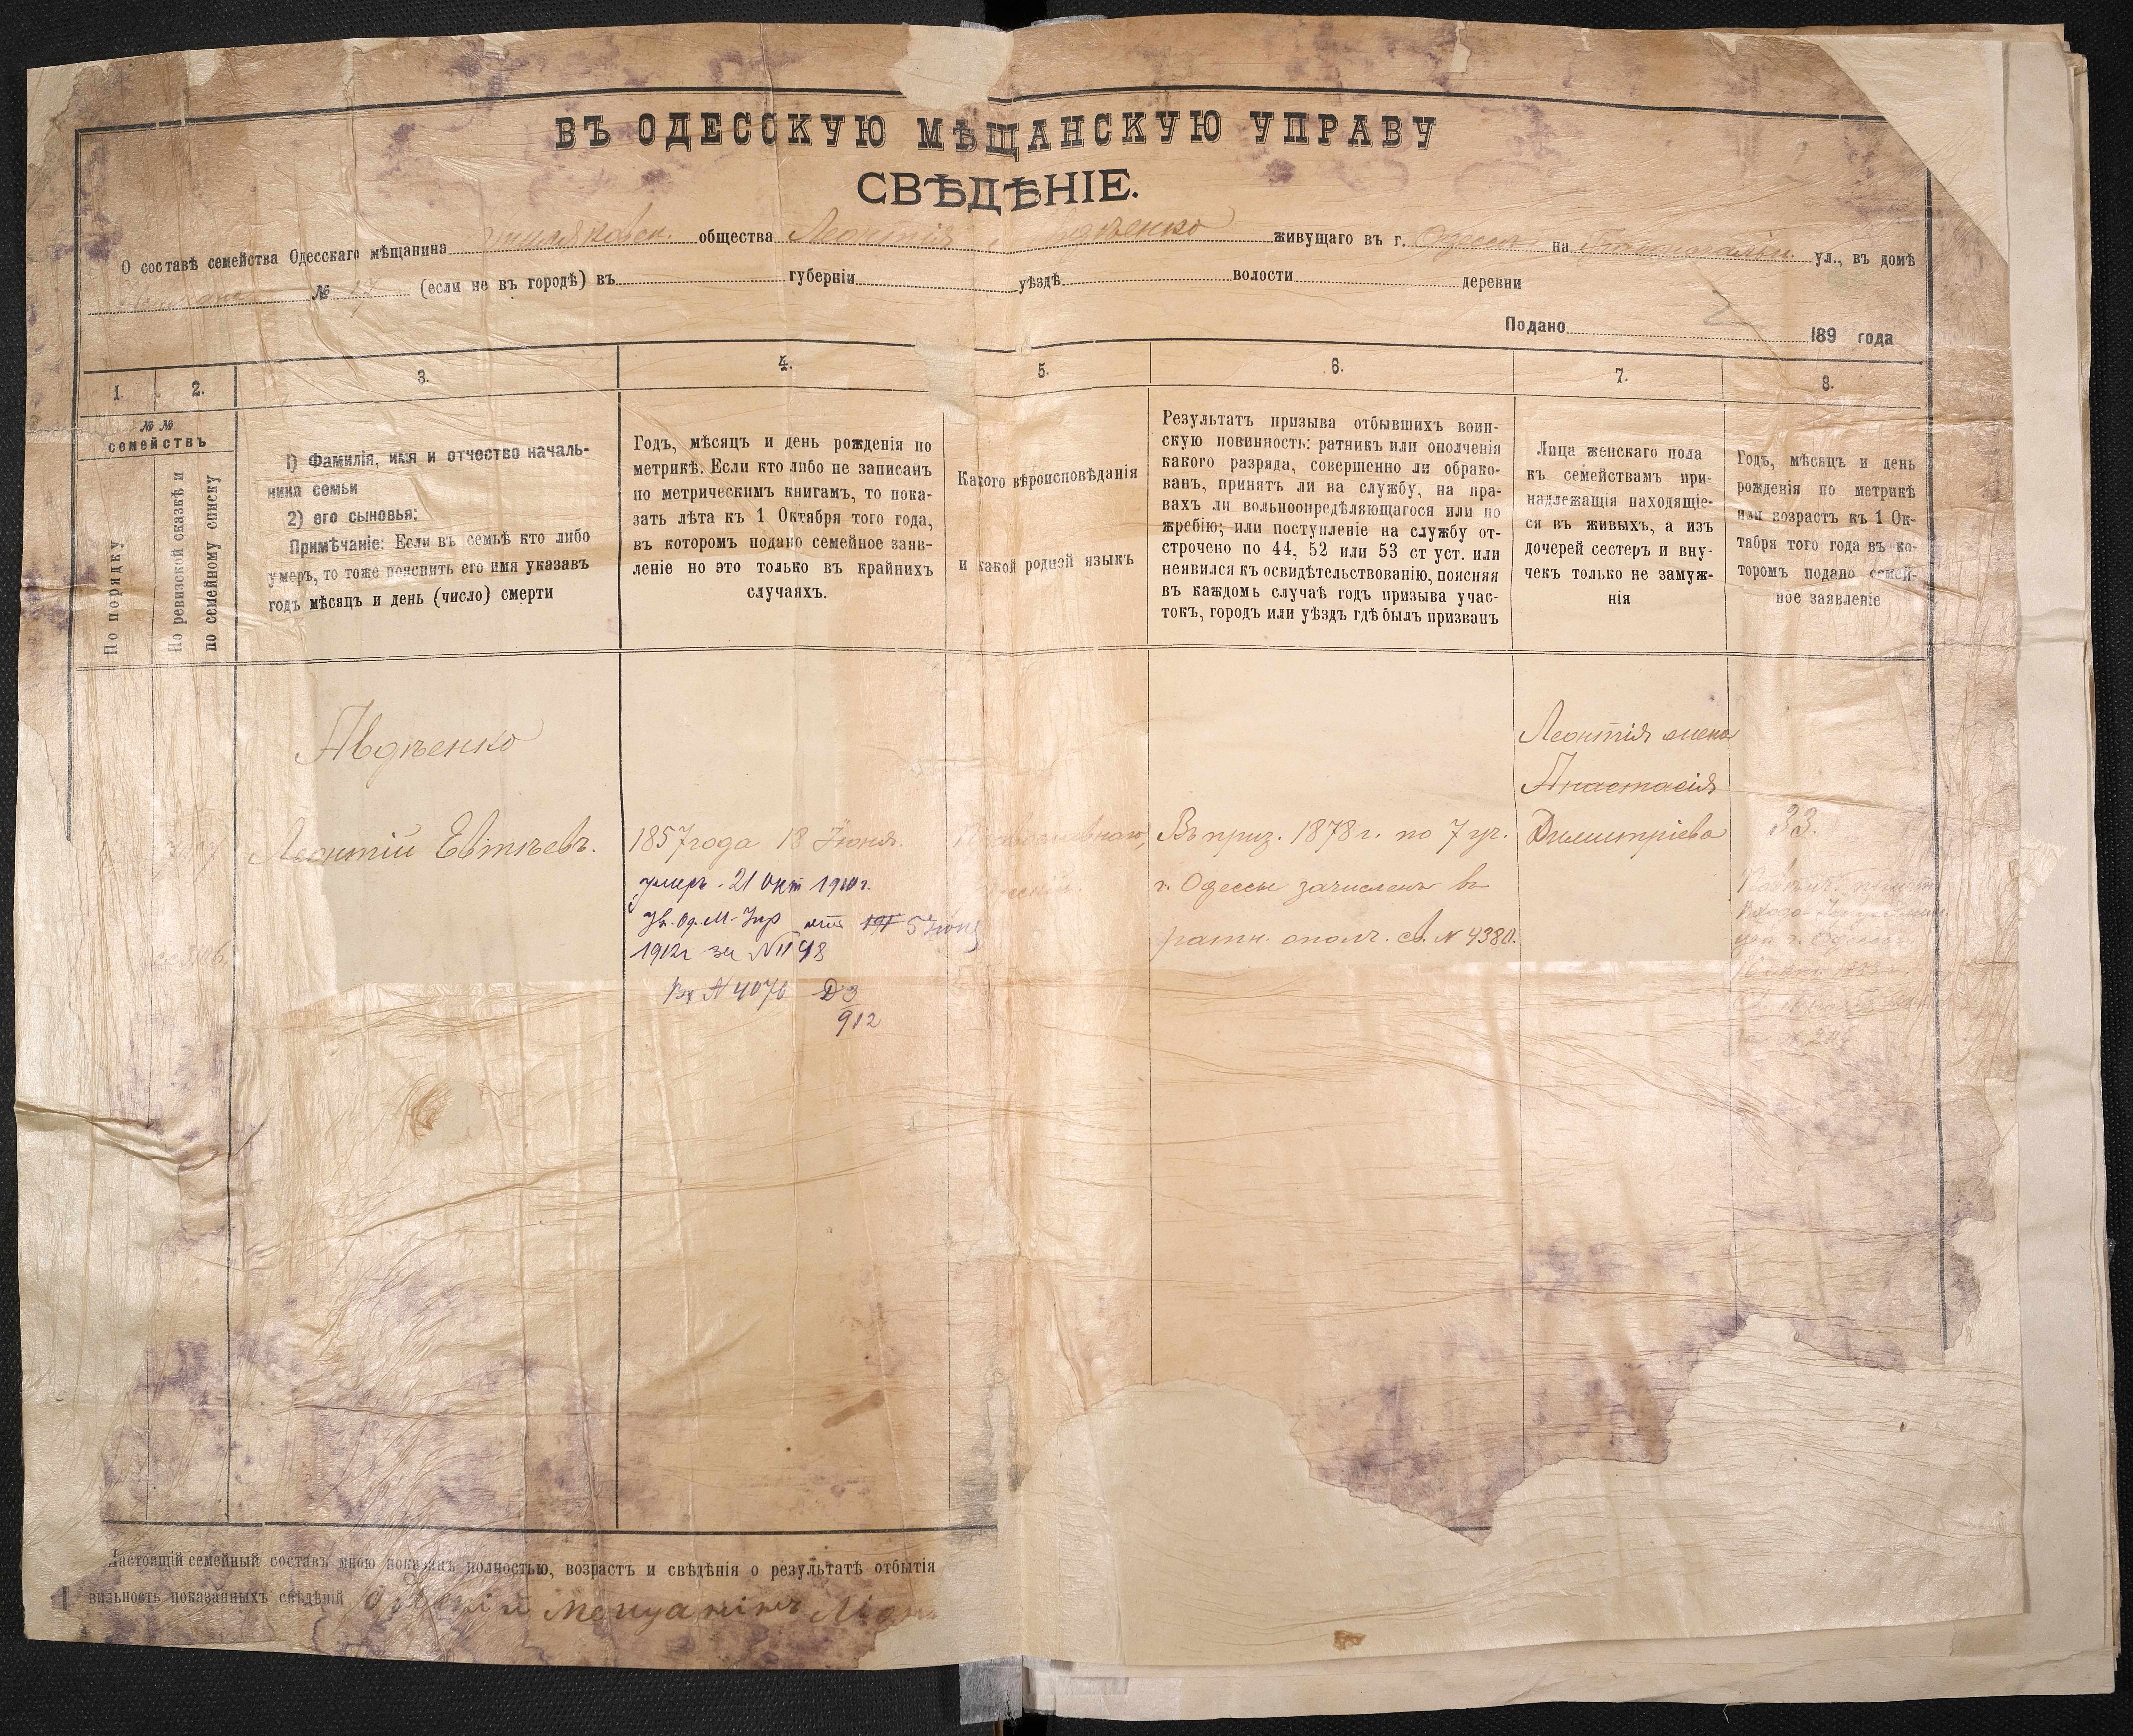 ВЪ ОДЕССКУЮ МѢЩАНСКУЮ УПРАВУ
СВѢДѢНІЕ.
О составѣ семейства Одесскаго мѣщанина общества Леонтія Авдѣенко живущаго въ г. Одессѣ на ул., въ домѣ
№ 17 (если не въ городѣ) въ губерніи уѣздѣ волости деревни
Подано 189 года
1. 2. 3. 4. 5. 6. 7. 8.
№ №
семействъ
По порядку
По ревизской сказкѣ и
по семейному списку
1) Фамилія, имя и отчество началь-
ника семьи
2) его сыновья:
Примѣчаніе: Если въ семьѣ кто либо
умеръ, то тоже пояснить его имя указавъ
годъ мѣсяцъ и день (число) смерти
Годъ, мѣсяцъ и день рожденія по
метрикѣ. Если кто либо не записанъ
по метрическимъ книгамъ, то пока-
зать лѣта къ 1 Октября того года,
въ которомъ подано семейное заяв-
леніе но это только въ крайнихъ
случаяхъ.
Какого вѣроисповѣданія
и какой родной языкъ
Результатъ призыва отбывшихъ воин-
скую повинность: ратникъ или ополченія
какого разряда, совершенно ли обрако-
ванъ, принятъ ли на службу, на пра-
вахъ ли вольноопредѣляющагося или по
жребію; или поступленіе на службу от-
строчено по 44, 52 или 53 ст уст. или
неявился къ освидѣтельствованію, поясняя
въ каждомъ случаѣ годъ призыва учас-
токъ, городъ или уѣздъ гдѣ былъ призванъ
Лица женскаго пола
къ семействамъ при-
надлежащія находящіе-
ся въ живыхъ, а изъ
дочерей сестеръ и вну-
чекъ только не замуж-
нія
Годъ, мѣсяцъ и день
рожденія по метрикѣ
или возрастъ къ 1 Ок-
тября того года въ ко-
торомъ подано семей-
ное заявленіе
Авдѣенко
Леонтій Евтѣевъ.
1857 года 18 Іюня.
умеръ 21 Окт 1910 г.
Ув. Од. М. Упр отъ 5 Іюня
1912 г за № 1198
Вх № 4076 Д 3
912
Православнаго,
Въ приз. 1878 г. по 7 уч.
г. Одессы зачисленъ въ
ратн. ополч. св. № 4380.
Леонтія жена
Анастасія
Димитріева
33.
Настоящій семейный составъ мною показанъ полностью, возрастъ и свѣдѣнія о результатѣ отбытія
вильность показанныхъ свѣдѣній